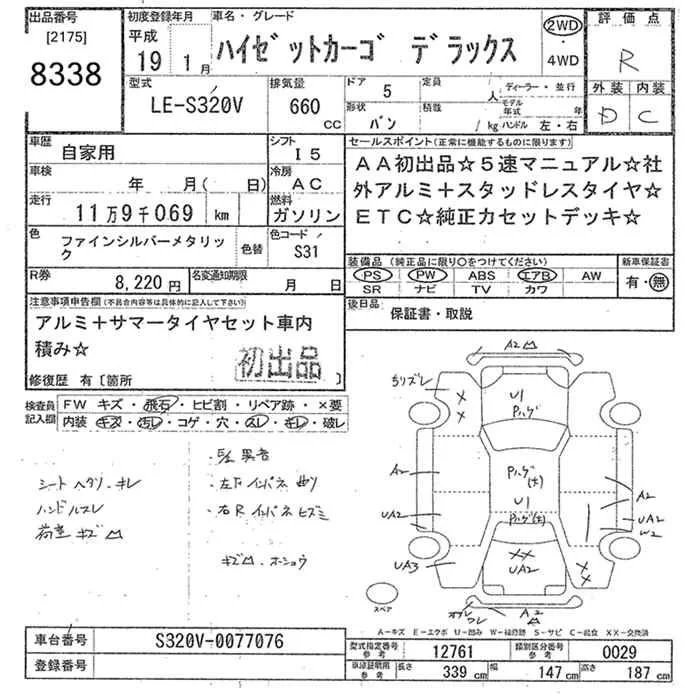 出品番号
[2175]
8338
初度登録年月
平成
19 1月
車名・グレード
ハイゼットカーゴ デラックス
2WD
・
4WD
評価点
R
外装 内装
D C
型式
LE-S320V
排気量
660 CC
ドア 5
定員 人
形状 バン
積載 / kg
ディーラー・並行
モデル年式 年
ハンドル 左・右
車歴
自家用
シフト
I5
車検
年 月( 日)
冷房
AC
走行
11万9千069 km
燃料
ガソリン
色
ファインシルバーメタリック
色替
色コード
S31
R券
8,220円
名変通知期限
月 日
セールスポイント(正常に機能するものに限ります)
AA初出品☆5速マニュアル☆社
外アルミ+スタッドレスタイヤ☆
ETC☆純正カセットデッキ☆
装備品(純正品に限り○をつけてください)
PS PW ABS エアB AW
SR ナビ TV カワ
新車保証書
有・無
後日品
保証書・取説
注意事項申告欄(不具合内容等は具体的に記入して下さい)
アルミ+サマータイヤセット車内
積み☆
初出品
修復歴 有〔箇所
検査員
記入欄
FW キズ・飛石・ヒビ割・リペア跡・×要
内装 キズ・汚レ・コゲ・穴・スレ・キレ・破レ
シート ヘタリ・キレ
ハンドルスレ
荷室 キズ凹
・左F インパネ 曲り
・右R インパネ ヒズミ
キズ凹 ホショウ
A2凹
チリズレ
U1
Pハゲ
A2
Pハゲ
(大)
U1
A2
UA2
Pハゲ(大)
UA2
W2
UA3
××
UA2
××
スペア
A2凹
A-キズ E-エクボ U-凹み W-補修跡 S-サビ C-腐食 XX-交換済
車台番号
S320V-0077076
登録番号
型式指定番号
参考
12761
類別区分番号
参考
0029
車検証明用
参考
長さ 339 cm
幅 147 cm
高さ 187 cm